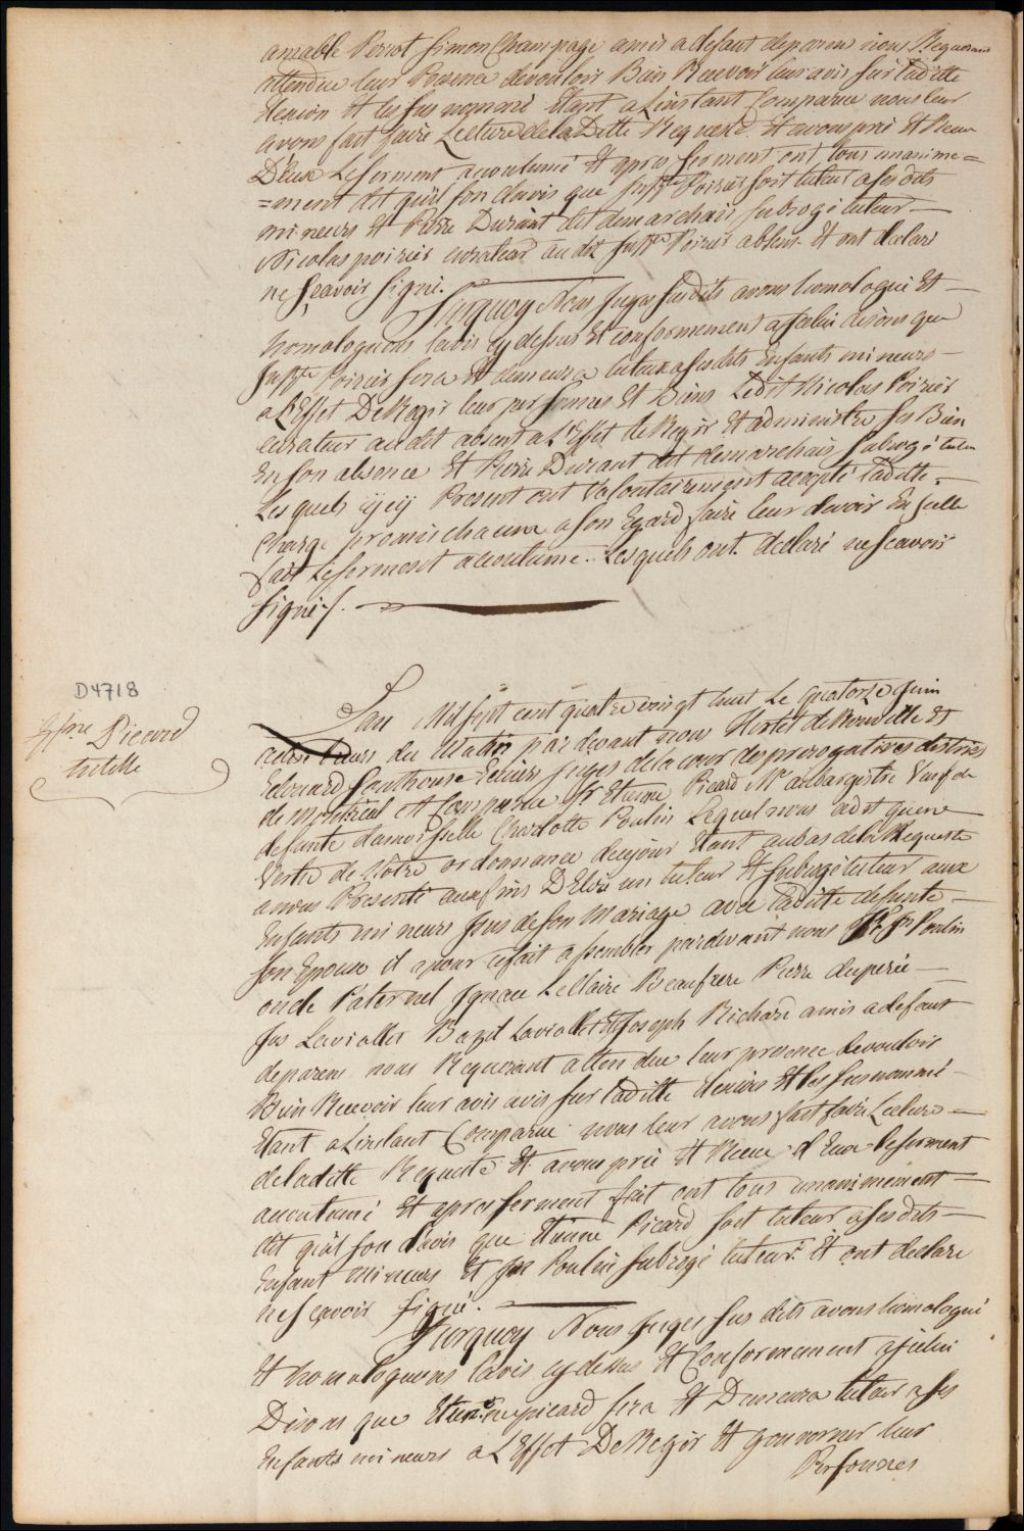 amable Perrot Simon Champage amis a defaut deparens nous Requerant
attendue leur Presence devouloir Bien Recevoir leur avis sur laditte
Election Et les sus nommé Etant a Linstant Comparue nous leur
avons fait faire Lecture dela Ditte Requeste Et avons pris Et Recu
D'Eux Le serment acoutumé Et apres serment ont tous unanime=
=ment dit qu'il son davis que Josph. Poirier soit tuteur a ses dits
mineurs Et Pierre Durant dit demarchais subrogé tuteur —
Nicolas poirier curateur au dit Josph. Poirier absent Et ont declaré
ne sçavoir signé.
Surquoy Nous Juges susdits avons homologué Et —
homologuons lavis cy dessus Et conformement a Icelui disons que
Josph. Poirier sera Et demeurera tuteur a ses dits Enfants mineurs —
a L'Effet De Regir leur personnes Et Biens Ledit Nicolas Poirier
curateur au dit absent a L'Effet de Regir Et administrer ses Bien
En son absence Et Pierre Durant dit demarchais subrogé tuteur
Les quels icy Present ont Volontairement accepté laditte
Charge promis chacun a son Egard faire leur devoir En Icelle
fait Le serment acoutume. Lesquels ont declaré ne scavoir
signé /.
D4718
Etne Picard
tutelle
Lan Mil sept cent quatre vingt huit Le quatorze Juin
heures du Matin par devant nous Hertel de Rouville Et
Edouard Southouse Ecuiers juges de la cour des prerogatives district
de montreal Est Comparue Sr Etienne Picard Me Veuf de
defunte damoiselle Charlotte Poulin Lequel nous a dit quen
Vertu de Notre ordonnance decejour Etant aubas dela Requeste
a nous Presenté aux fins D'Elire un tuteur Et subrogé tuteur aux
Enfants mineurs Issus de son Mariage avec laditte defunte —
son Epouse il a pour cefait assembler pardevant nous Sr Jn Poulin
oncle Paternel Ignace Lellaire Beaufrere Pierre duperé —
Jos Laviollet Bazil Laviollet Et Joseph Richard amis a defaut
deparens nous Requerant attendue leur presence devouloir
Bien Recevoir leur avis avis sur laditte Election Et les susnommé
Etant a Linstant Comparue nous leur avons fait faire Lecture —
deladitte Requete Et avons pris Et Recue d'Eux le serment
acoutumé Et apres serment fait ont tous unanimement —
dit qu'il son d'avis que Etienne Picard soit tuteur a ses dits —
Enfant Mineurs Et Jn Poulin subrogé tuteur. Et ont declare
ne sçavoir signé.
Surquoy Nous Juges sus dits avons homologué
Et homologuons lavis cy dessus Et Conformement a Icelui
Disons que Etienne picard sera Et Demeurera tuteur a ses
Enfants mineurs a L'Effet De Regir Et gouverner leur
Personnes